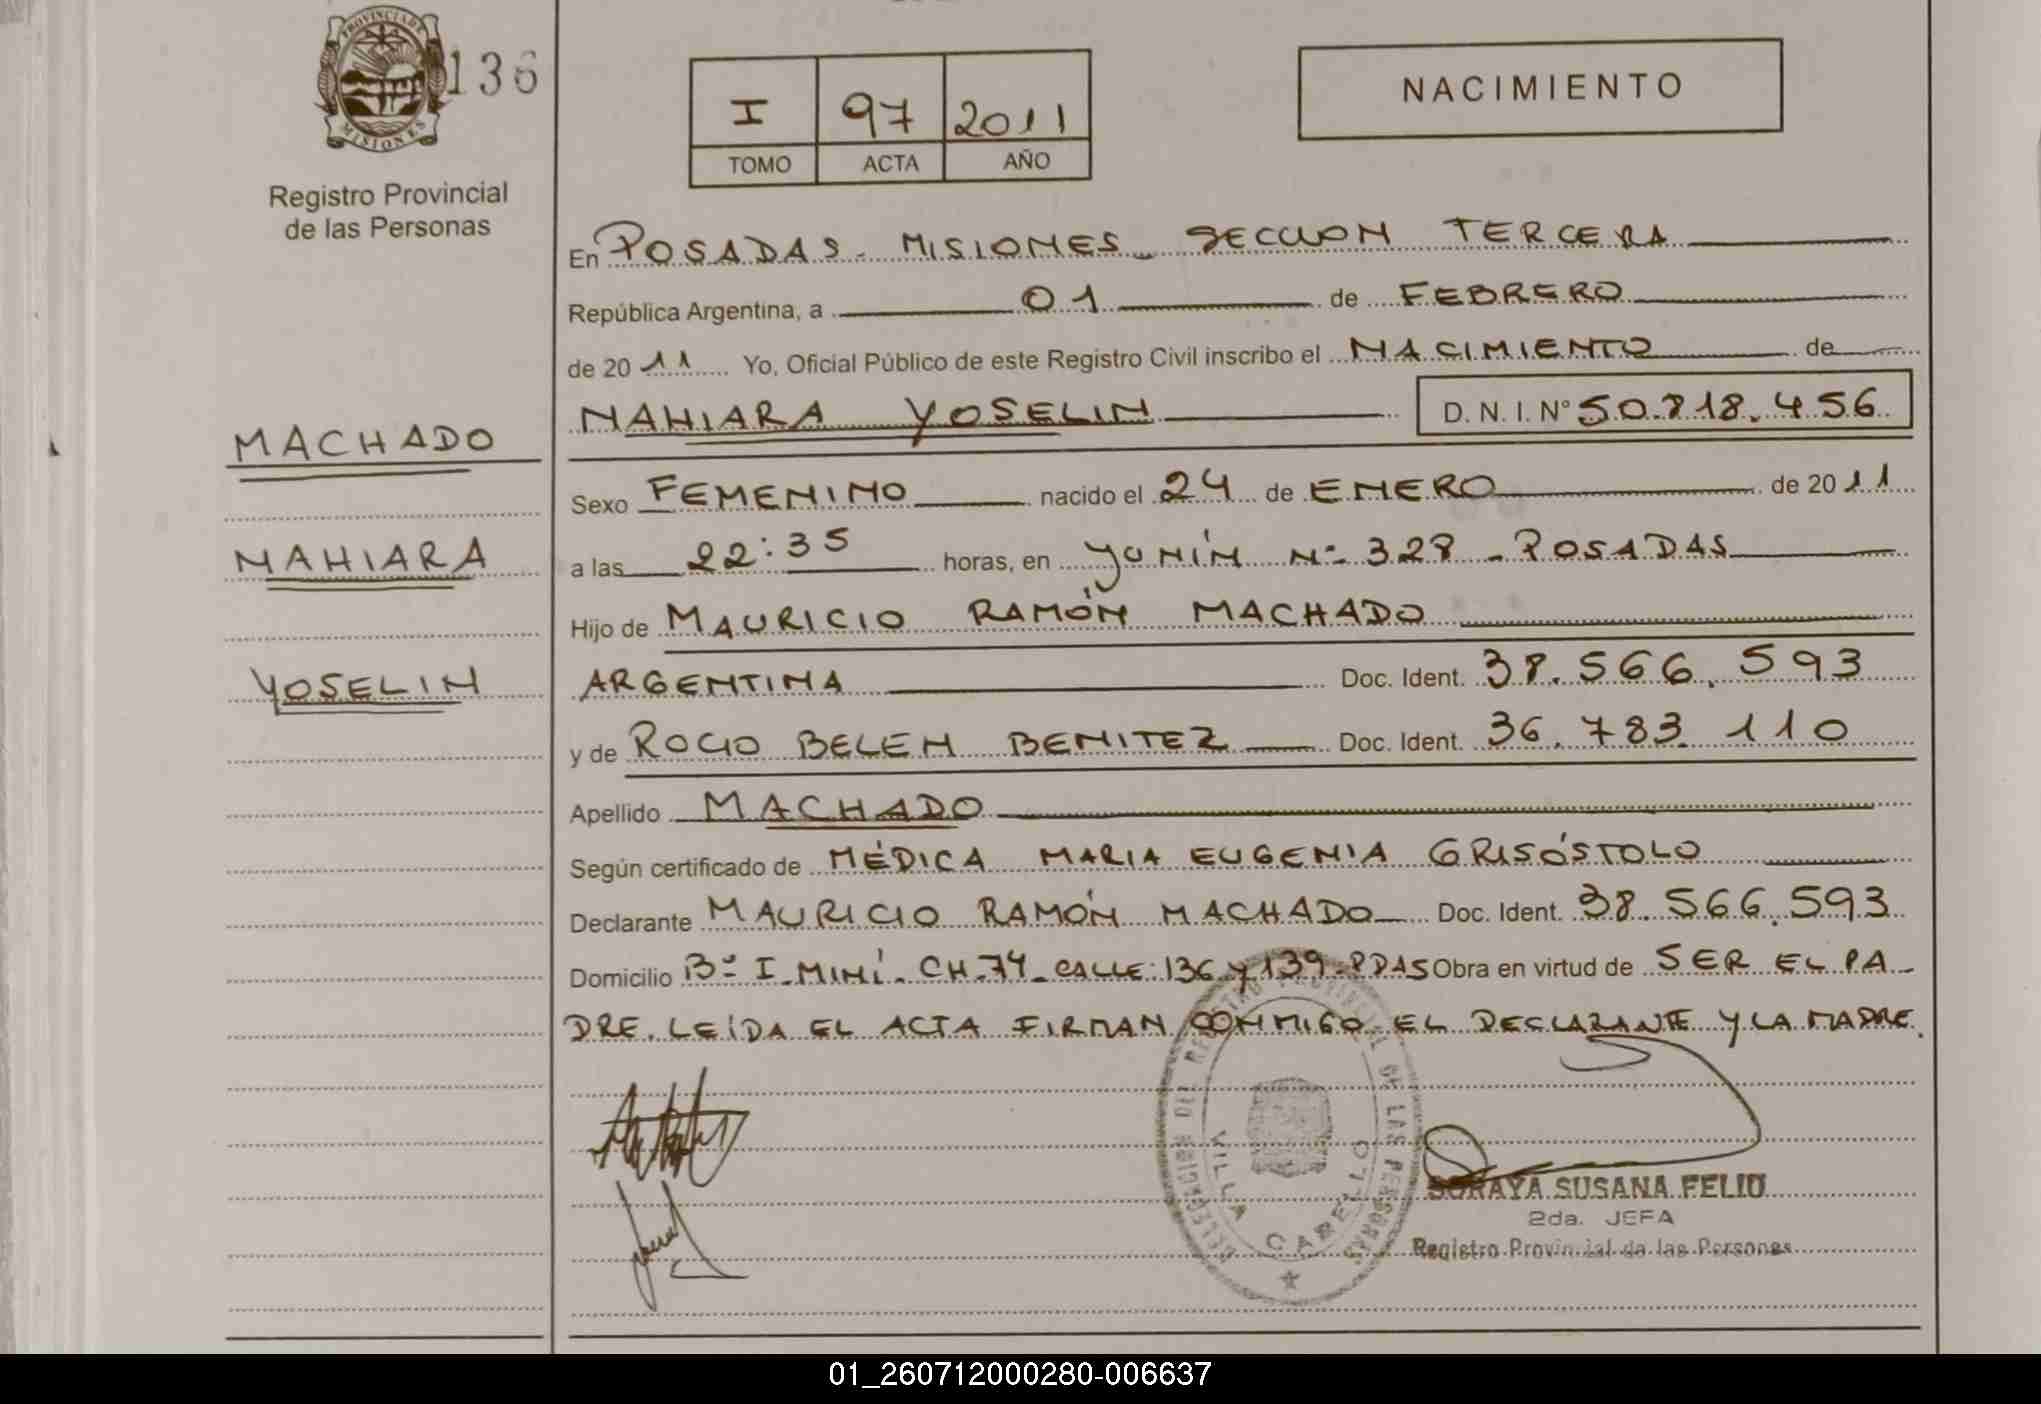 PROVINCIA DE
MISIONES
136
Registro Provincial
de las Personas
I 97 2011
TOMO ACTA AÑO
NACIMIENTO
En POSADAS - MISIONES - SECCION TERCERA
República Argentina, a 01 de FEBRERO
de 2011 Yo, Oficial Público de este Registro Civil inscribo el NACIMIENTO de
NAHIARA YOSELIN D. N. I. N° 50.818.456
MACHADO
Sexo FEMENINO nacido el 24 de ENERO de 2011
NAHIARA
a las 22:35 horas, en YUNÍN Nº 328 - POSADAS
Hijo de MAURICIO RAMÓN MACHADO
YOSELIN
ARGENTINA Doc. Ident. 38.566.593
y de ROCIO BELEN BENITEZ Doc. Ident. 36.783.110
Apellido MACHADO
Según certificado de MÉDICA MARIA EUGENIA GRISÓSTOLO
Declarante MAURICIO RAMÓN MACHADO Doc. Ident. 38.566.593
Domicilio Bº I. MINÍ - CH. 74 - CALLE: 136 y 139 - PDAS Obra en virtud de SER EL PA-
DRE. LEÍDA EL ACTA FIRMAN CONMIGO EL DECLARANTE Y LA MADRE.
DELEGACION DEL REGISTRO PROVINCIAL DE LAS PERSONAS
VILLA CABELLO
SORAYA SUSANA FELIU
2da. JEFA
Registro Provincial de las Personas
01_260712000280-006637